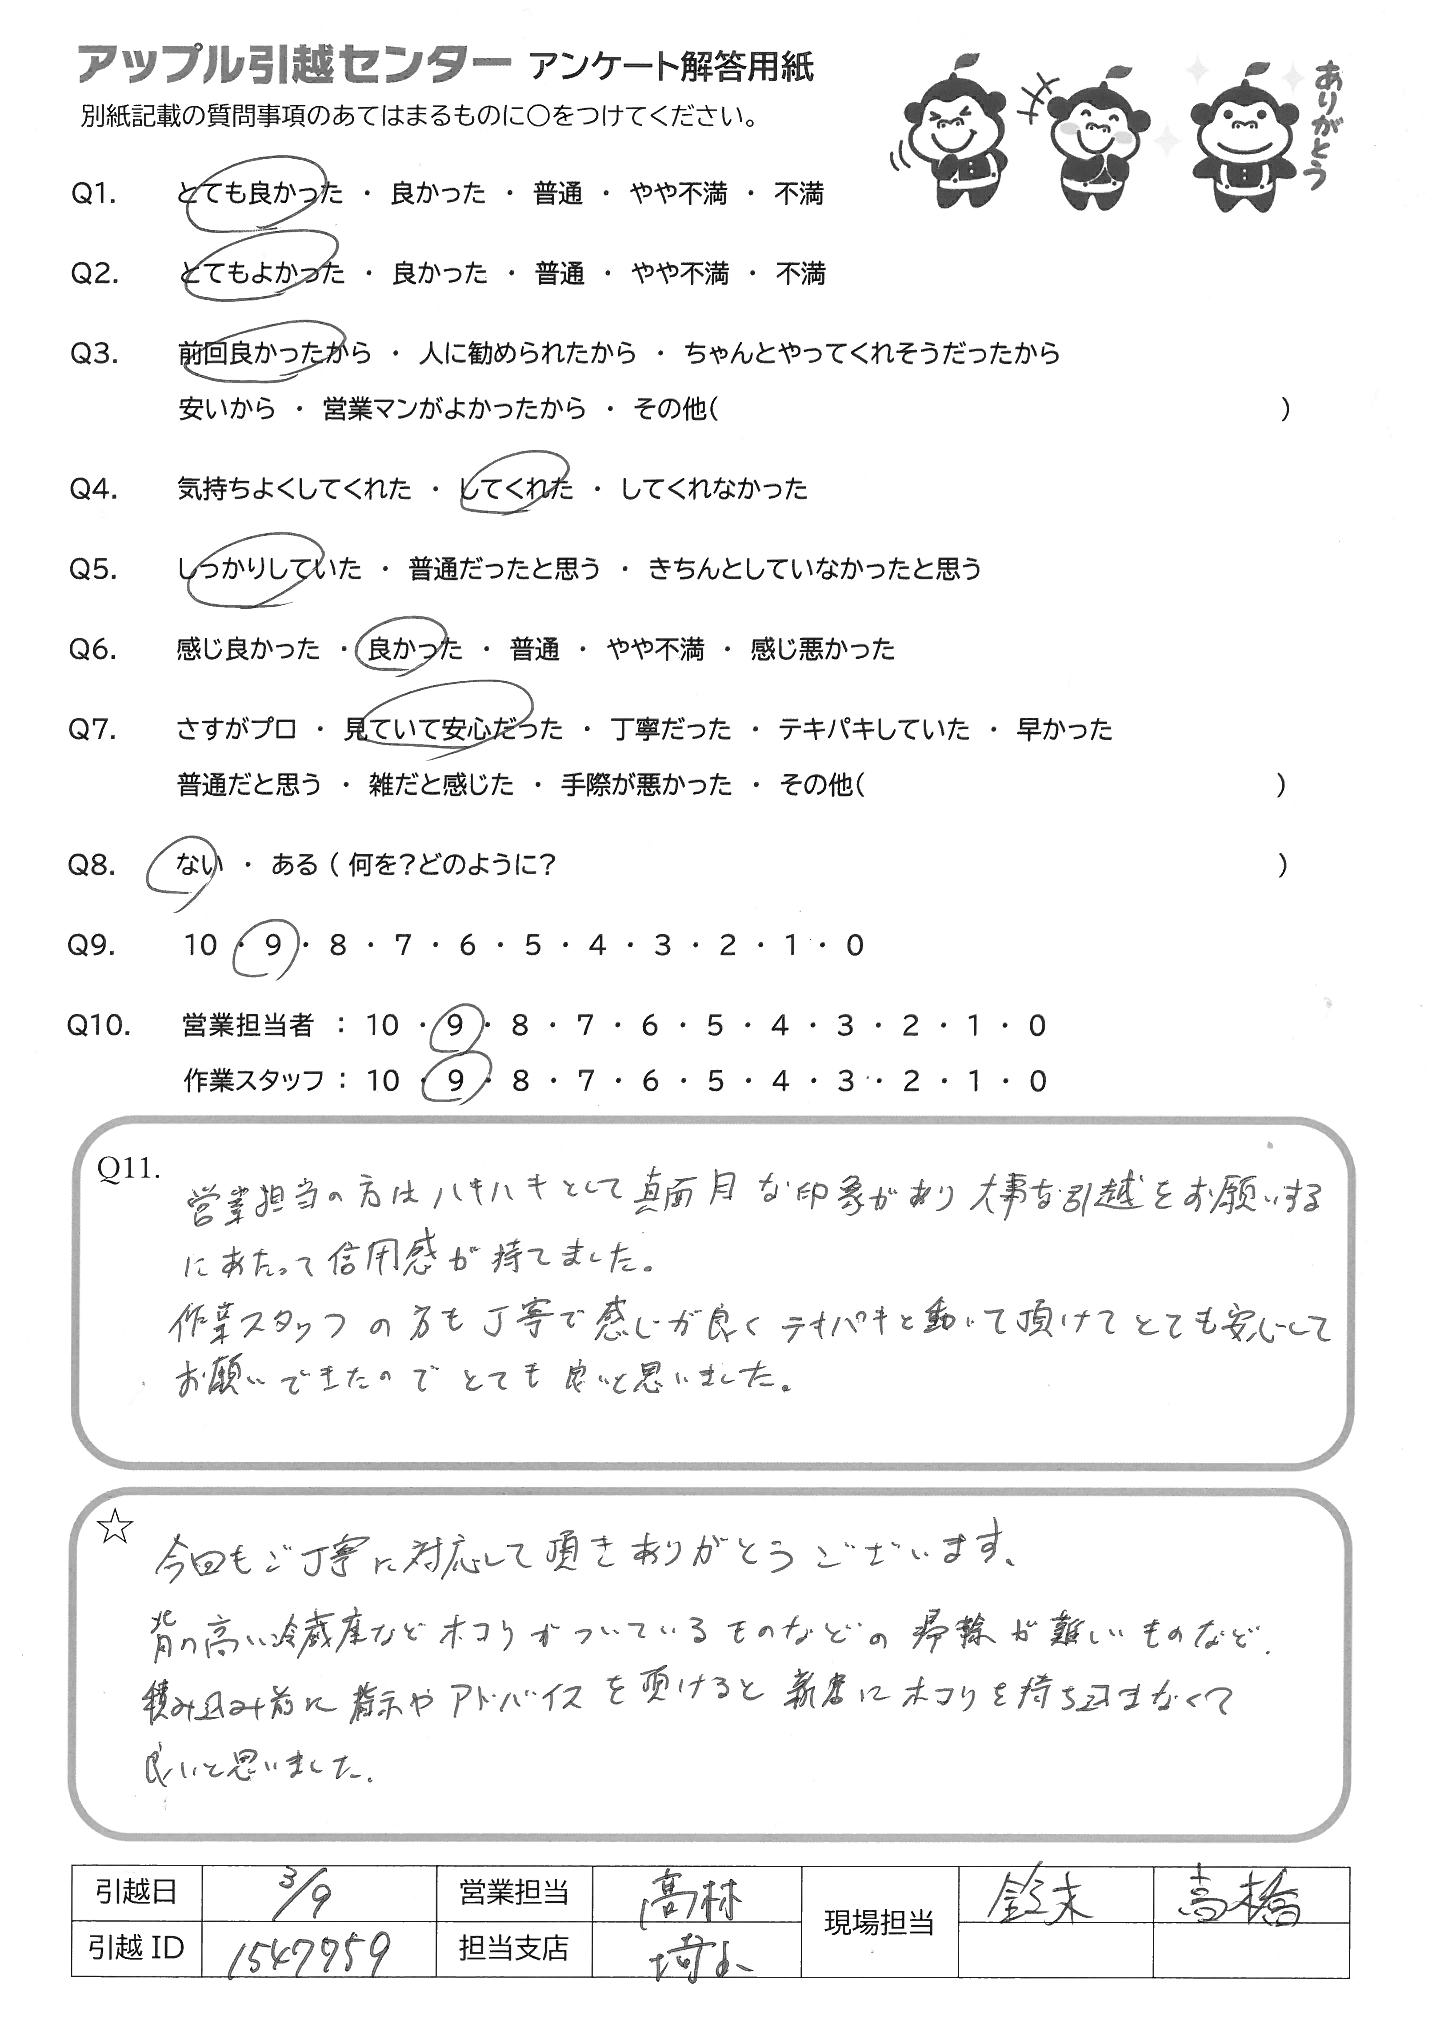 アップル引越センター アンケート解答用紙
別紙記載の質問事項のあてはまるものに○をつけてください。
ありがとう
Q1. とても良かった ・ 良かった ・ 普通 ・ やや不満 ・ 不満
Q2. とてもよかった ・ 良かった ・ 普通 ・ やや不満 ・ 不満
Q3. 前回良かったから ・ 人に勧められたから ・ ちゃんとやってくれそうだったから
安いから ・ 営業マンがよかったから ・ その他( )
Q4. 気持ちよくしてくれた ・ してくれた ・ してくれなかった
Q5. しっかりしていた ・ 普通だったと思う ・ きちんとしていなかったと思う
Q6. 感じ良かった ・ 良かった ・ 普通 ・ やや不満 ・ 感じ悪かった
Q7. さすがプロ ・ 見ていて安心だった ・ 丁寧だった ・ テキパキしていた ・ 早かった
普通だと思う ・ 雑だと感じた ・ 手際が悪かった ・ その他( )
Q8. ない ・ ある ( 何を?どのように? )
Q9. 10 ・ 9 ・ 8 ・ 7 ・ 6 ・ 5 ・ 4 ・ 3 ・ 2 ・ 1 ・ 0
Q10. 営業担当者 : 10 ・ 9 ・ 8 ・ 7 ・ 6 ・ 5 ・ 4 ・ 3 ・ 2 ・ 1 ・ 0
作業スタッフ : 10 ・ 9 ・ 8 ・ 7 ・ 6 ・ 5 ・ 4 ・ 3 ・ 2 ・ 1 ・ 0
Q11.
営業担当の方はハキハキとして真面目な印象があり大事な引越をお願いする
にあたって信用感が持てました。
作業スタッフの方も丁寧で感じが良くテキパキと動いて頂けてとても安心して
お願いできたのでとても良いと思いました。
☆
今回もご丁寧に対応して頂きありがとうございます。
背の高い冷蔵庫などホコリがついているものなどの掃除が難しいものなど、
積み込み前に指示やアドバイスを頂けると新居にホコリを持ち込まなくて
良いと思いました。
引越日 3/9 営業担当 高林 現場担当 鈴木 高橋
引越 ID 1547759 担当支店 埼玉